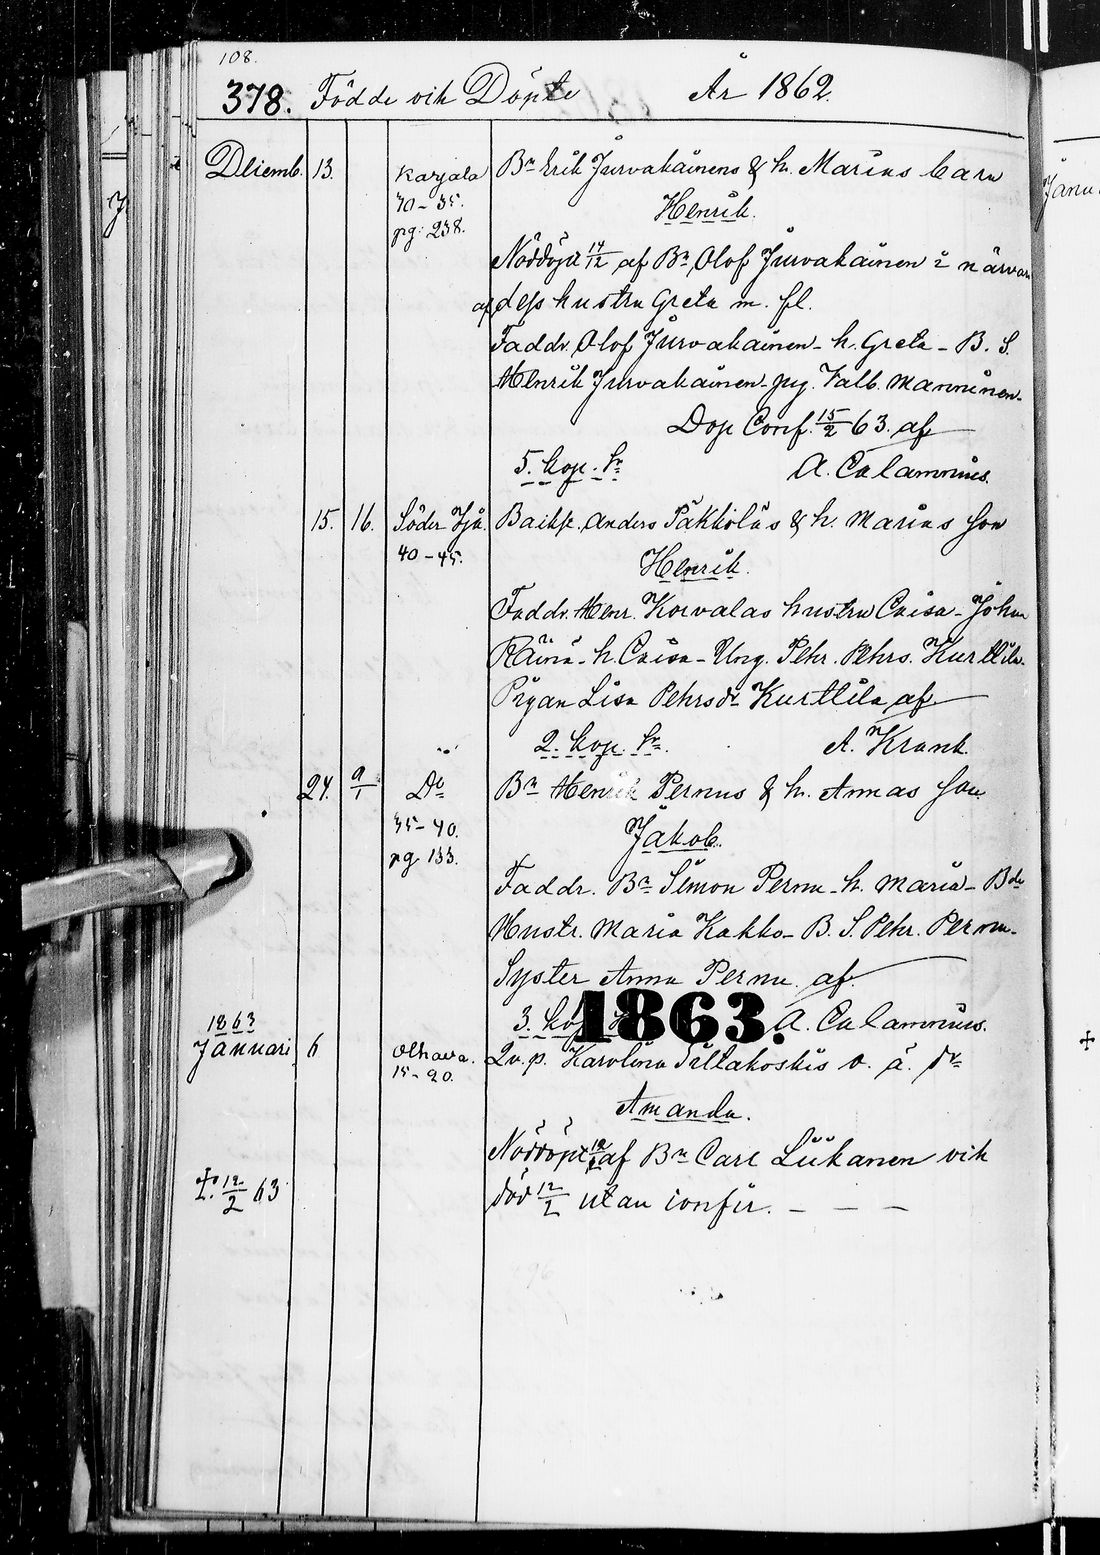 108.
378. Födde och Döpte År 1862.
Decemb. 13. Karjala Bn Erik Jurvakainens & h. Marias barn
30-35. Henrik.
pg: 238.
Nöddöpt 14/12 af Bn Olof Jurvakainen i närvaro
af dess hustru Greta m. fl.
Faddr. Olof Jurvakainen - h. Greta - B. S.
Henrik Jurvakainen - pig. Valb. Manninen -
Dop Conf. 15/2 63. af
5. kop. Sr. A. Calamnius.
15. 16. Söder Ijå. Anders Pakkolas & h. Marias son
40-45. Henrik.
Faddr. Henr. Korvalas hustru Caisa - Johan
Räinä - h. Caisa - Ung. Pehr. Pehrs. Kurttila -
Pigan Lisa Pehrsdr Kurttila af
2. kop. Sr. A. Krank.
24. 9/1 Do Bn Henrik Pernus & h. Annas son
35-40. Jakob.
pg. 133.
Faddr. Bn Simon Pernu - h. Maria - Bde
Hustr. Maria Kakko - B. S. Pehr. Pernu -
Syster Anna Pernu. af
3. kop. 1863. A. Calamnius.
1863
Januari 6 Olhava. Qv. p. Karolina Siltakoskis o. ä. dr
15-20. Amanda.
Nöddöpt af Bn Carl Liikanen och
‡. 12/2 63 död 12/2 utan confir. - - -